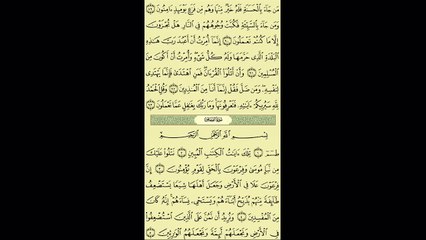 مَن جَاءَ بِالْحَسَنَةِ فَلَهُ خَيْرٌ مِّنْهَا وَهُم مِّن فَزَعٍ يَوْمَئِذٍ ءَامِنُونَ ٨٩
وَمَن جَاءَ بِالسَّيِّئَةِ فَكُبَّتْ وُجُوهُهُمْ فِي النَّارِ هَلْ تُجْزَوْنَ
إِلَّا مَا كُنتُمْ تَعْمَلُونَ ٩٠ إِنَّمَا أُمِرْتُ أَنْ أَعْبُدَ رَبَّ هَٰذِهِ
الْبَلْدَةِ الَّذِي حَرَّمَهَا وَلَهُ كُلُّ شَيْءٍ وَأُمِرْتُ أَنْ أَكُونَ مِنَ
الْمُسْلِمِينَ ٩١ وَأَنْ أَتْلُوَا الْقُرْءَانَ فَمَنِ اهْتَدَىٰ فَإِنَّمَا يَهْتَدِي
لِنَفْسِهِ وَمَن ضَلَّ فَقُلْ إِنَّمَا أَنَا مِنَ الْمُنذِرِينَ ٩٢ وَقُلِ الْحَمْدُ
لِلَّهِ سَيُرِيكُمْ ءَايَاتِهِ فَتَعْرِفُونَهَا وَمَا رَبُّكَ بِغَافِلٍ عَمَّا تَعْمَلُونَ ٩٣
سُورَةُ القَصَصِ
بِسْمِ اللَّهِ الرَّحْمَٰنِ الرَّحِيمِ
طسٓمٓ ١ تِلْكَ ءَايَاتُ الْكِتَابِ الْمُبِينِ ٢ نَتْلُوا عَلَيْكَ
مِن نَّبَإِ مُوسَىٰ وَفِرْعَوْنَ بِالْحَقِّ لِقَوْمٍ يُؤْمِنُونَ ٣ إِنَّ
فِرْعَوْنَ عَلَا فِي الْأَرْضِ وَجَعَلَ أَهْلَهَا شِيَعًا يَسْتَضْعِفُ
طَائِفَةً مِّنْهُمْ يُذَبِّحُ أَبْنَاءَهُمْ وَيَسْتَحْيِي نِسَاءَهُمْ إِنَّهُ كَانَ
مِنَ الْمُفْسِدِينَ ٤ وَنُرِيدُ أَن نَّمُنَّ عَلَى الَّذِينَ اسْتُضْعِفُوا
فِي الْأَرْضِ وَنَجْعَلَهُمْ أَئِمَّةً وَنَجْعَلَهُمُ الْوَارِثِينَ ٥